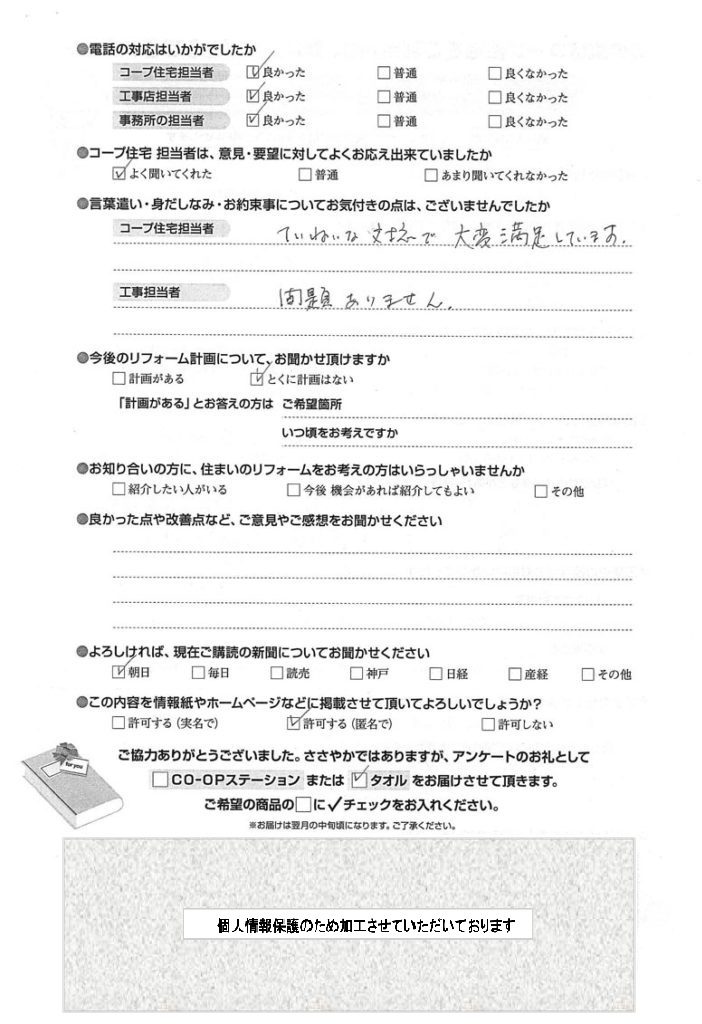 ●電話の対応はいかがでしたか
コープ住宅担当者 ☑良かった □普通 □良くなかった
工事店担当者 ☑良かった □普通 □良くなかった
事務所の担当者 ☑良かった □普通 □良くなかった
●コープ住宅 担当者は、意見・要望に対してよくお応え出来ていましたか
☑よく聞いてくれた □普通 □あまり聞いてくれなかった
●言葉遣い・身だしなみ・お約束事についてお気付きの点は、ございませんでしたか
コープ住宅担当者 ていねいな対応で 大変満足しています。
工事担当者 問題ありません。
●今後のリフォーム計画について、お聞かせ頂けますか
□計画がある ☑とくに計画はない
「計画がある」とお答えの方は ご希望箇所
いつ頃をお考えですか
●お知り合いの方に、住まいのリフォームをお考えの方はいらっしゃいませんか
□紹介したい人がいる □今後 機会があれば紹介してもよい □その他
●良かった点や改善点など、ご意見やご感想をお聞かせください
●よろしければ、現在ご購読の新聞についてお聞かせください
☑朝日 □毎日 □読売 □神戸 □日経 □産経 □その他
●この内容を情報紙やホームページなどに掲載させて頂いてよろしいでしょうか?
□許可する(実名で) ☑許可する(匿名で) □許可しない
for you
ご協力ありがとうございました。ささやかではありますが、アンケートのお礼として
□CO-OPステーション または ☑タオル をお届けさせて頂きます。
ご希望の商品の□に✓チェックをお入れください。
※お届けは翌月の中旬頃になります。ご了承ください。
個人情報保護のため加工させていただいております